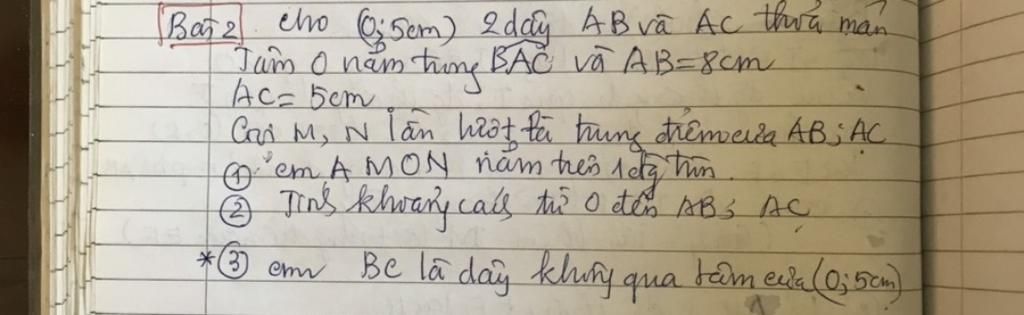 Bài 2. cho (0; 5cm) 2 dây AB và AC thoả mãn
Tâm O nằm trong BAC và AB = 8cm
AC = 5cm
Gọi M, N lần lượt là trung điểm của AB; AC
① cm A MON nằm trên 1 đg tròn.
② Tính khoảng cách từ O đến AB; AC
*③ cm BC là dây không qua tâm của (0; 5cm)